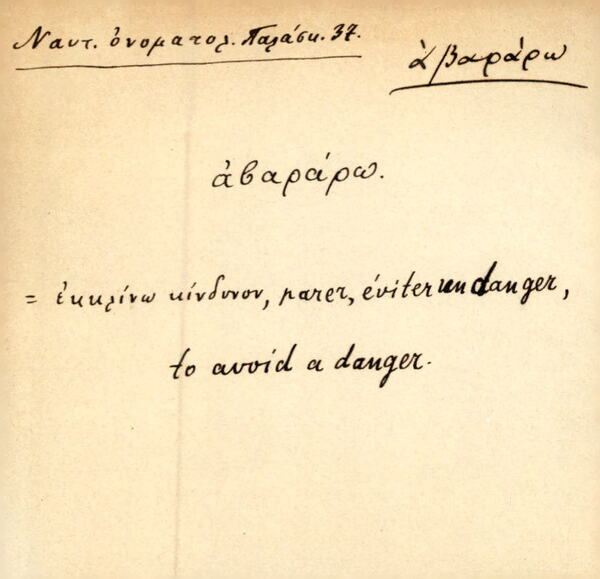 Ναυτ. ὀνοματολ. Παλάσκ. 37.
ἀβαράρω
ἀβαράρω.
= ἐκκλίνω κίνδυνον, parer, éviter un danger,
to avoid a danger.